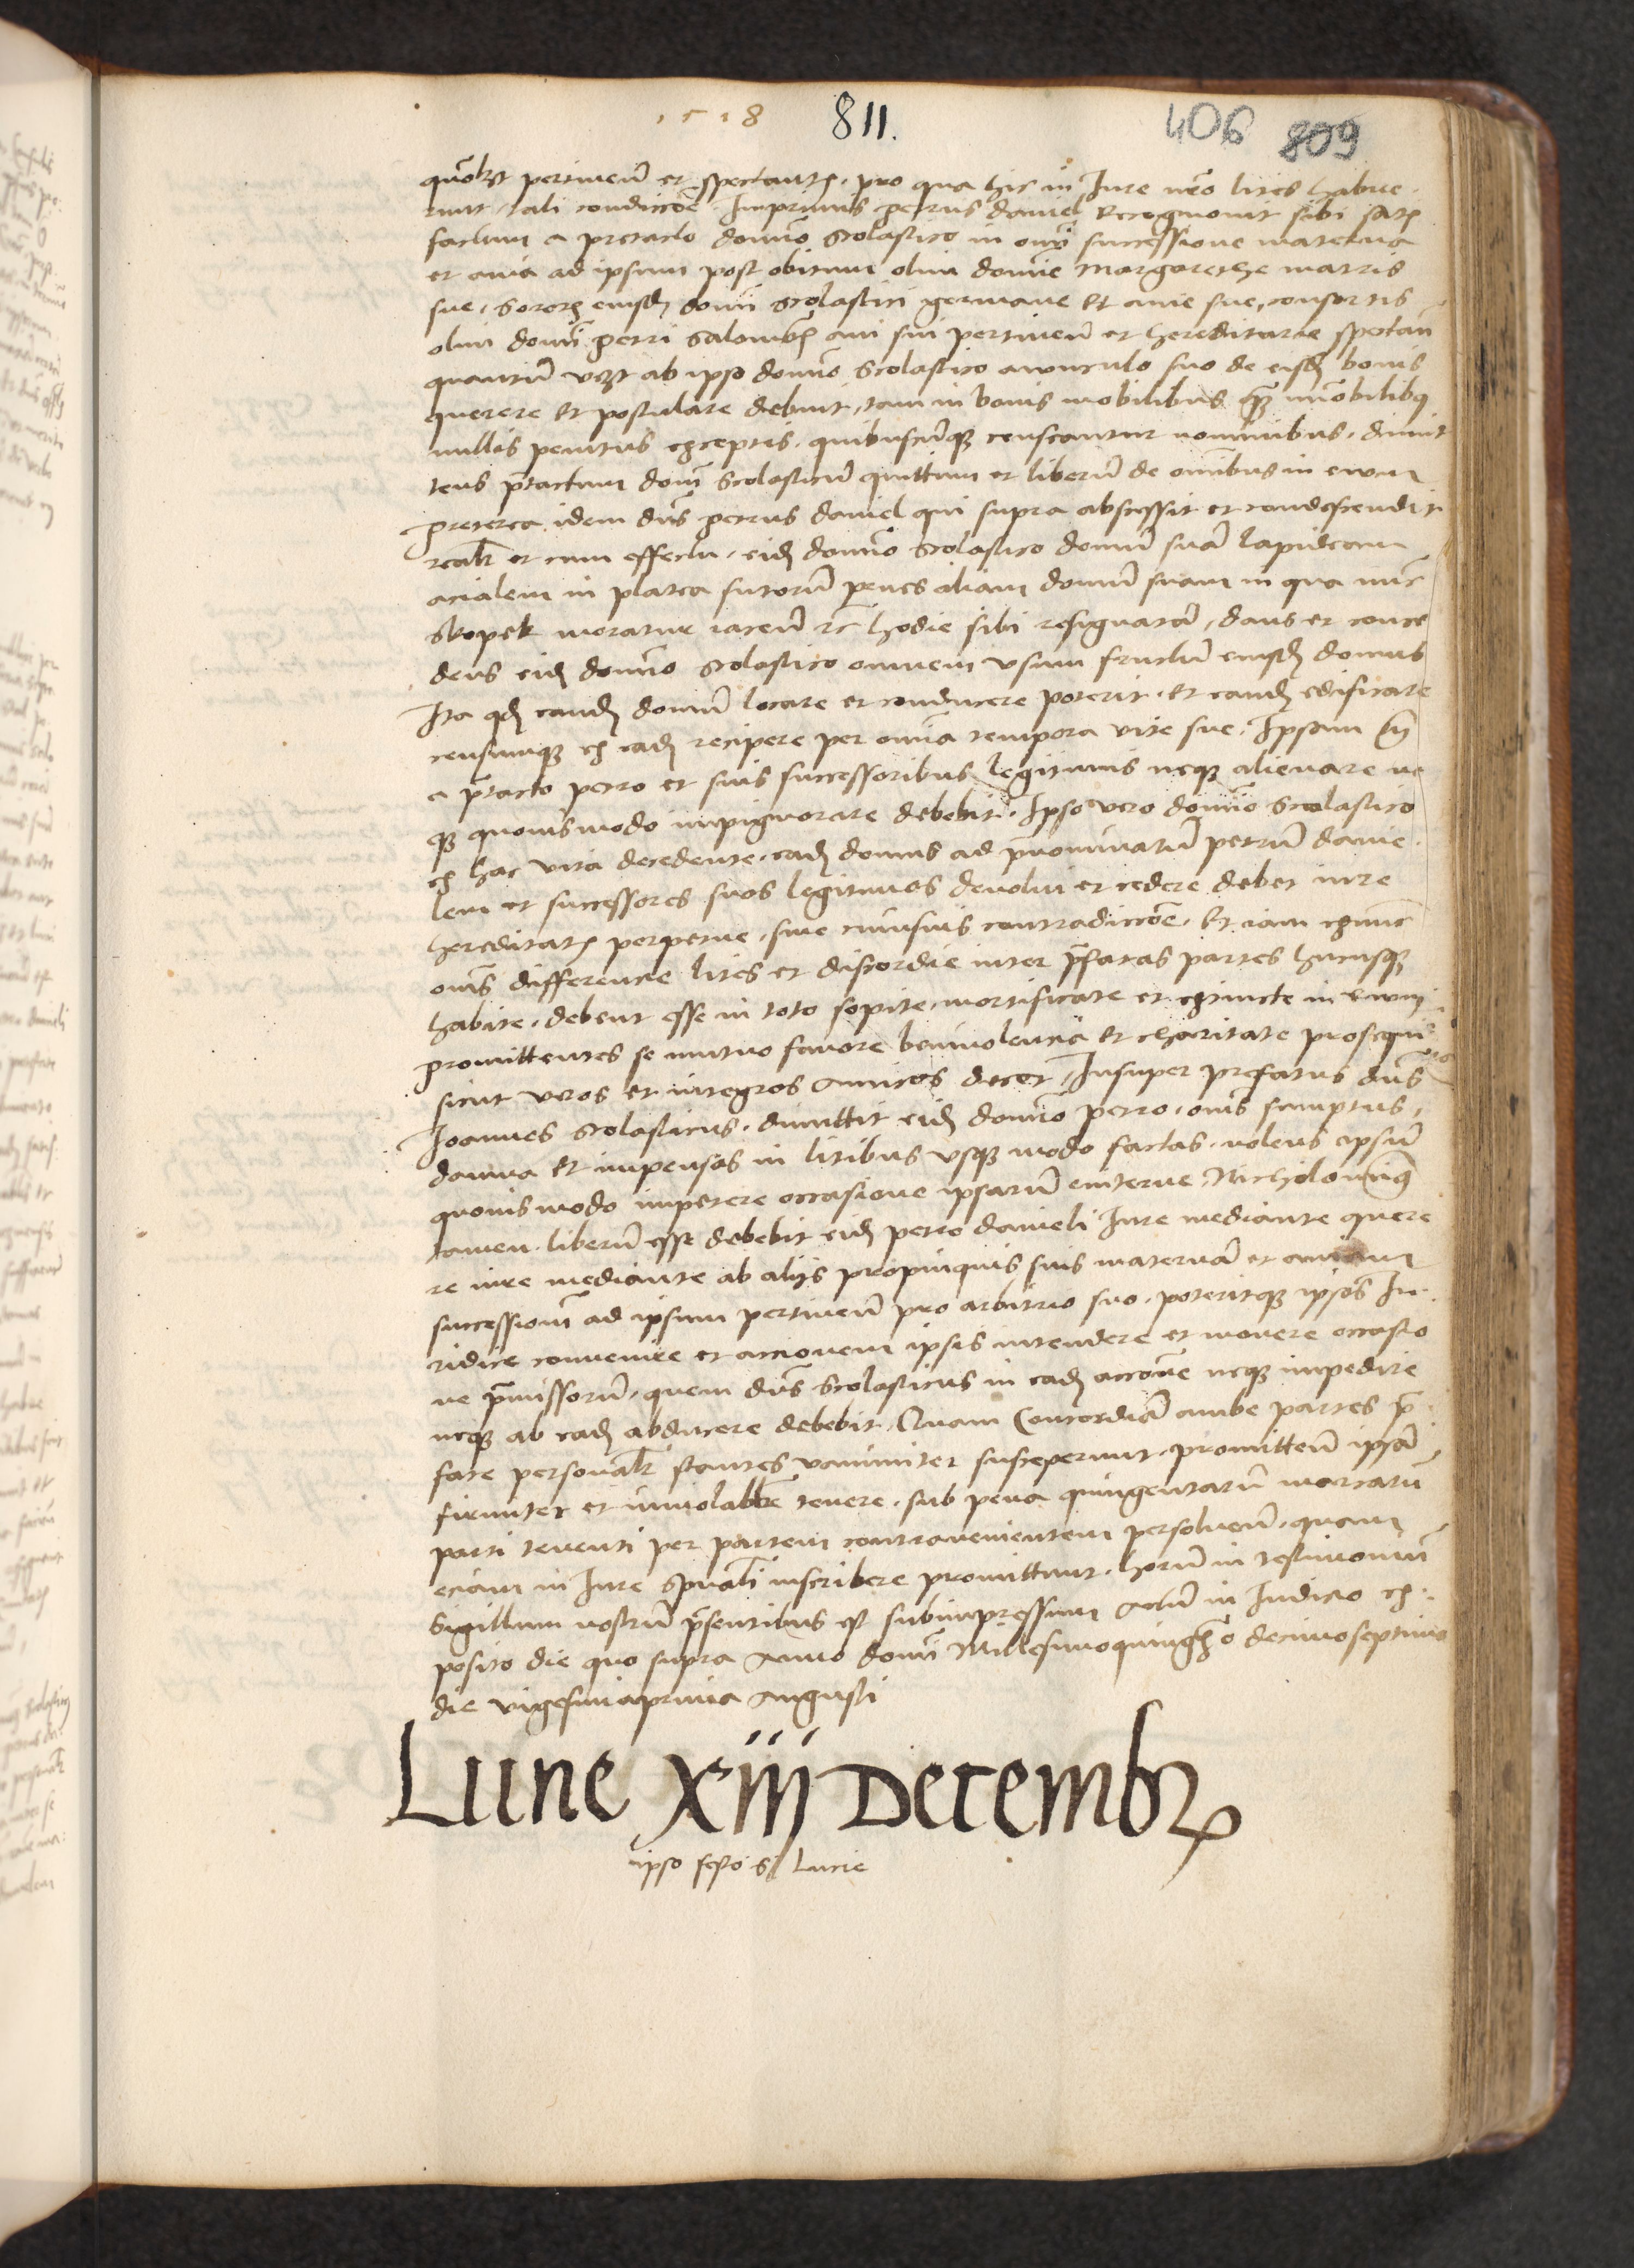 1518 811. 406 809
quolibet pertinen et spectantem. pro qua hic in Jure nro lites habue
runt, tali condiccoe Imprimis petrus daniel Recognouit sibi satis
factum a pretacto domno Scolastico in omi successione materna
et auia ad ipsum post obitum olim domne Margarethe matris
sue, Sororis eiusdem domi Scolastici germane et auie sue, consortis
olim domi petri Salomonis aui sui pertinen et hereditarie spectan
quantum vczt ab ipso domno Scolastico auunculo suo de eisdem bonis
querere et postulare debuit, tam in bonis mobilibus quam imobilibus
nullis penitus exceptis. quibuscumque censeantur nominibus. dimit
tens ptactum dom Scolasticum quittum et liberum de omibus in ewm
preterea idem dns petrus daniel qui supra abscessit et condescendit
realr et cum effectu, eidem domno Scolastico domum sua lapideam
acialem in platea sutorum penes aliam domum suam in qua nuc
Skopek moratur iacen et hodie sibi resignatam, dans et conce
dens eidem domno Scolastico omnem vsum fructum eiusdem domus
Ita quod eandem domum locare et conducere poterit. et eandem edificare
censumque ex eadem recipere per omia tempora vite sue. Ipsam
a ptacto petro et suis successoribus legitimis neque alienare ne
que quouismodo impignorare debebit. Ipso vero domno Scolastico
ex hac vita decedente. eadem domus ad pnominatum petrum danie
lem et successores suos legitimos deuolui et cedere debet iure
hereditatis perpetue, sine cuiusuis contradiccoe. Et iam exnunc
oms differencie lites et discordie inter pfatas partes hucusque
habite. debent esse in toto sopite, mortificate et extincte in ewm
promittentes se mutuo fauore beniuolencia et charitate prosequi
sicut veros et integros amicos decet, Insuper prefatus dns
Joannes Scolasticus. dimittit eidem domno petro, oms sumptus,
damna et impensas in litibus vsque modo factas. nolens ipsum
quouismodo impetere occasione ipsarum eviterne, Nichilominus
tamen. liberum esse debebit eidem petro danieli Jure mediante quere
re iure mediante ab alijs propinquis suis maternam et auiam
successionem ad ipsum pertinen pro arbitrio suo. poteritque ipsos Ju
ridice conuenire et accionem ipsis intendere et mouere occasio
ne pmissorum, quem dns Scolasticus in eadem accone neque impedire
neque ab eadem abducere debebit. Quam Concordiam ambe partes p
fate personalr stantes vnanimiter susceperunt. promitten ipsam
firmiter et inuiolabilr tenere. sub pena quingentarum marcarum
parti tenenti per partem contrauenientem persoluen. quam
eciam in Jure spuali inscribere promittunt. horum in testimonium
Sigillum nostrum psentibus est subimpressum Actum in Judicio ex
posito die quo supra Anno domi Millesimoquingeno decimoseptimo
die vigesimaprima Augusti
Lune XIII Decembris
ipso festo S Lucie